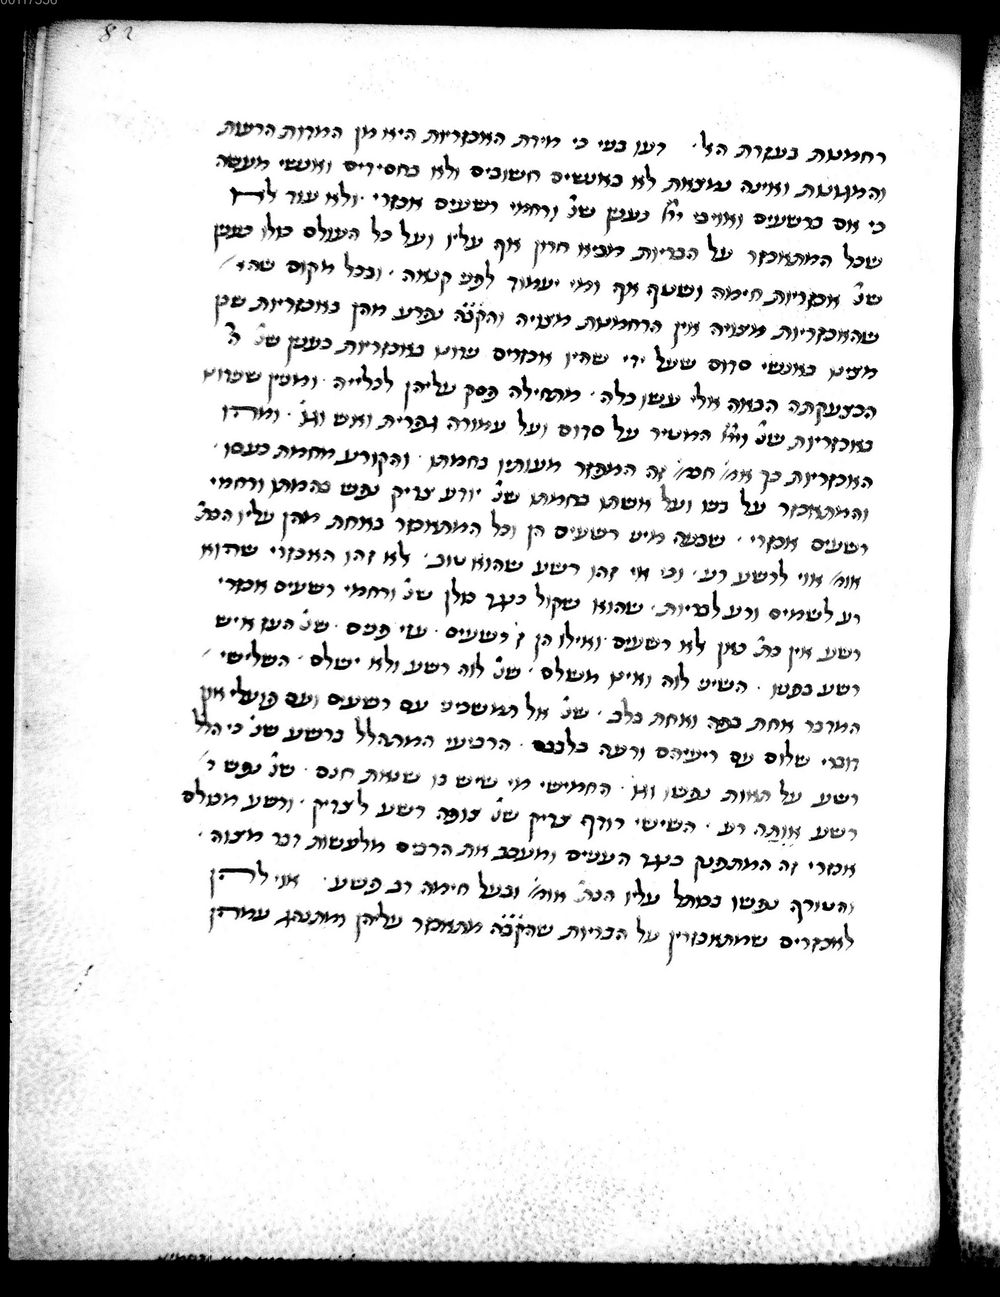 82
רחמנות בעזרת הא׳. דעו בני כי מידת האכזריות היא מן המדות הרעות
והמגונות ואינה נמצאת לא באנשים חשובים ולא בחסידים ואנשי מעשה
כי אם ברשעים ואויבי יי׳ כענין שנ׳ ורחמי רשעים אכזרי. ולא עוד לה
שכל המתאכזר על הבריות מביא חרון אף עליו ועל כל העולם כולו כענין
שנ׳ אכזריות חימה ושטף אף ומי יעמוד לפני קנאה. ובכל מקום שהא׳
שהאכזריות מצויה אין הרחמנות מצויה והקב״ה נפרע מהן באכזריות שכן
מצינו באנשי סדום שעל ידי שהיו אכזרים נידונו באכזריות כענין שנ׳ ה׳
הכצעקתה הבאה אלי עשו כלה. מתחילה פסק עליהן לכלייה. ומנין שנידונו
באכזריות שנ׳ ויי׳ המטיר על סדום ועל עמורה גפרית ואש וגו׳. ומהו
האכזריות כך אמ׳ חכמ׳ זה המפזר מעותיו בחמתו. והקורע מחמת כעסו.
והמתאכזר על בניו ועל אשתו בחמתו שנ׳ יודע צדיק נפש בהמתו ורחמי
רשעים אכזרי. שבעה מיני רשעים הן וכל המתאכזר באחת מהן עליו הכת׳
אומ׳ אוי לרשע רע. וכי אי זהו רשע שהוא טוב. לא זהו האכזרי שהוא
רע לשמים ורע לבריות. שהוא שקול כנגד כולן שנ׳ ורחמי רשעים אכזרי
רשע אין כת׳ כאן לא רשעים ואילו הן ז׳ רשעים. עזי פנים. שנ׳ העז איש
רשע בפניו. השיני לוה ואינו משלם. שנ׳ לוה רשע ולא ישלם. השלישי
המדבר אחת בפה ואחת בלב. שנ׳ אל תמשכיני עם רשעים ועם פועלי און
דוברי שלום עם ריעיהם ורעה בלבבם. הרביעי המתהלל ברשע שנ׳ כי הלל
רשע על תאות נפשו וגו׳. החמישי מי שיש בו שנאת חנם. שנ׳ נפש ר׳
רשע אותה רע. השישי רודף צדיק שנ׳ צופה רשע לצדיק. ורשע מכולם
אכזרי זה המתפנק כנגד העניים ומעכב את הרבים מלעשות דבר מצוה.
והטורף נפשו עליו הכת׳ אומ׳ ובעל חימה רב פשע. אוי להן
לאכזרים שמתאכזרין על הבריות שהקב״ה מתאכזר עליהן ומתנהג עמהן